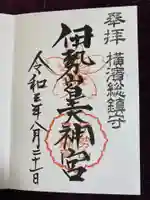 奉拝
横濱総鎮守
伊勢山皇大神宮
令和 年八月 十一日